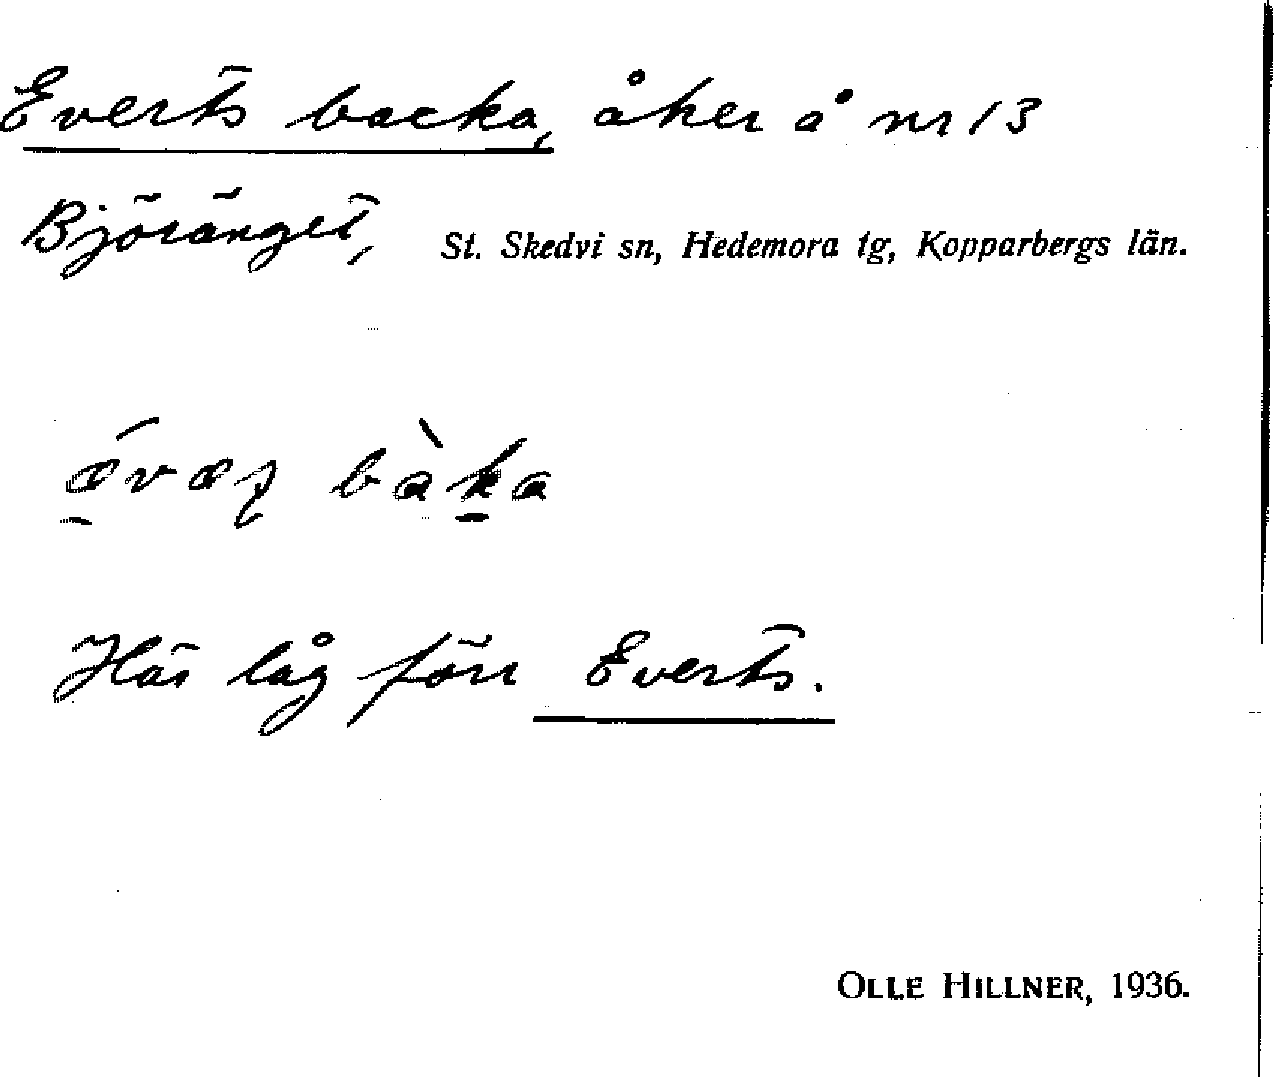 Everts backa, åker å nr 13
Björänget, St. Skedvi sn, Hedemora tg, Kopparbergs län.
bàka
Här låg förr Everts.
OLLE HILLNER, 1936.